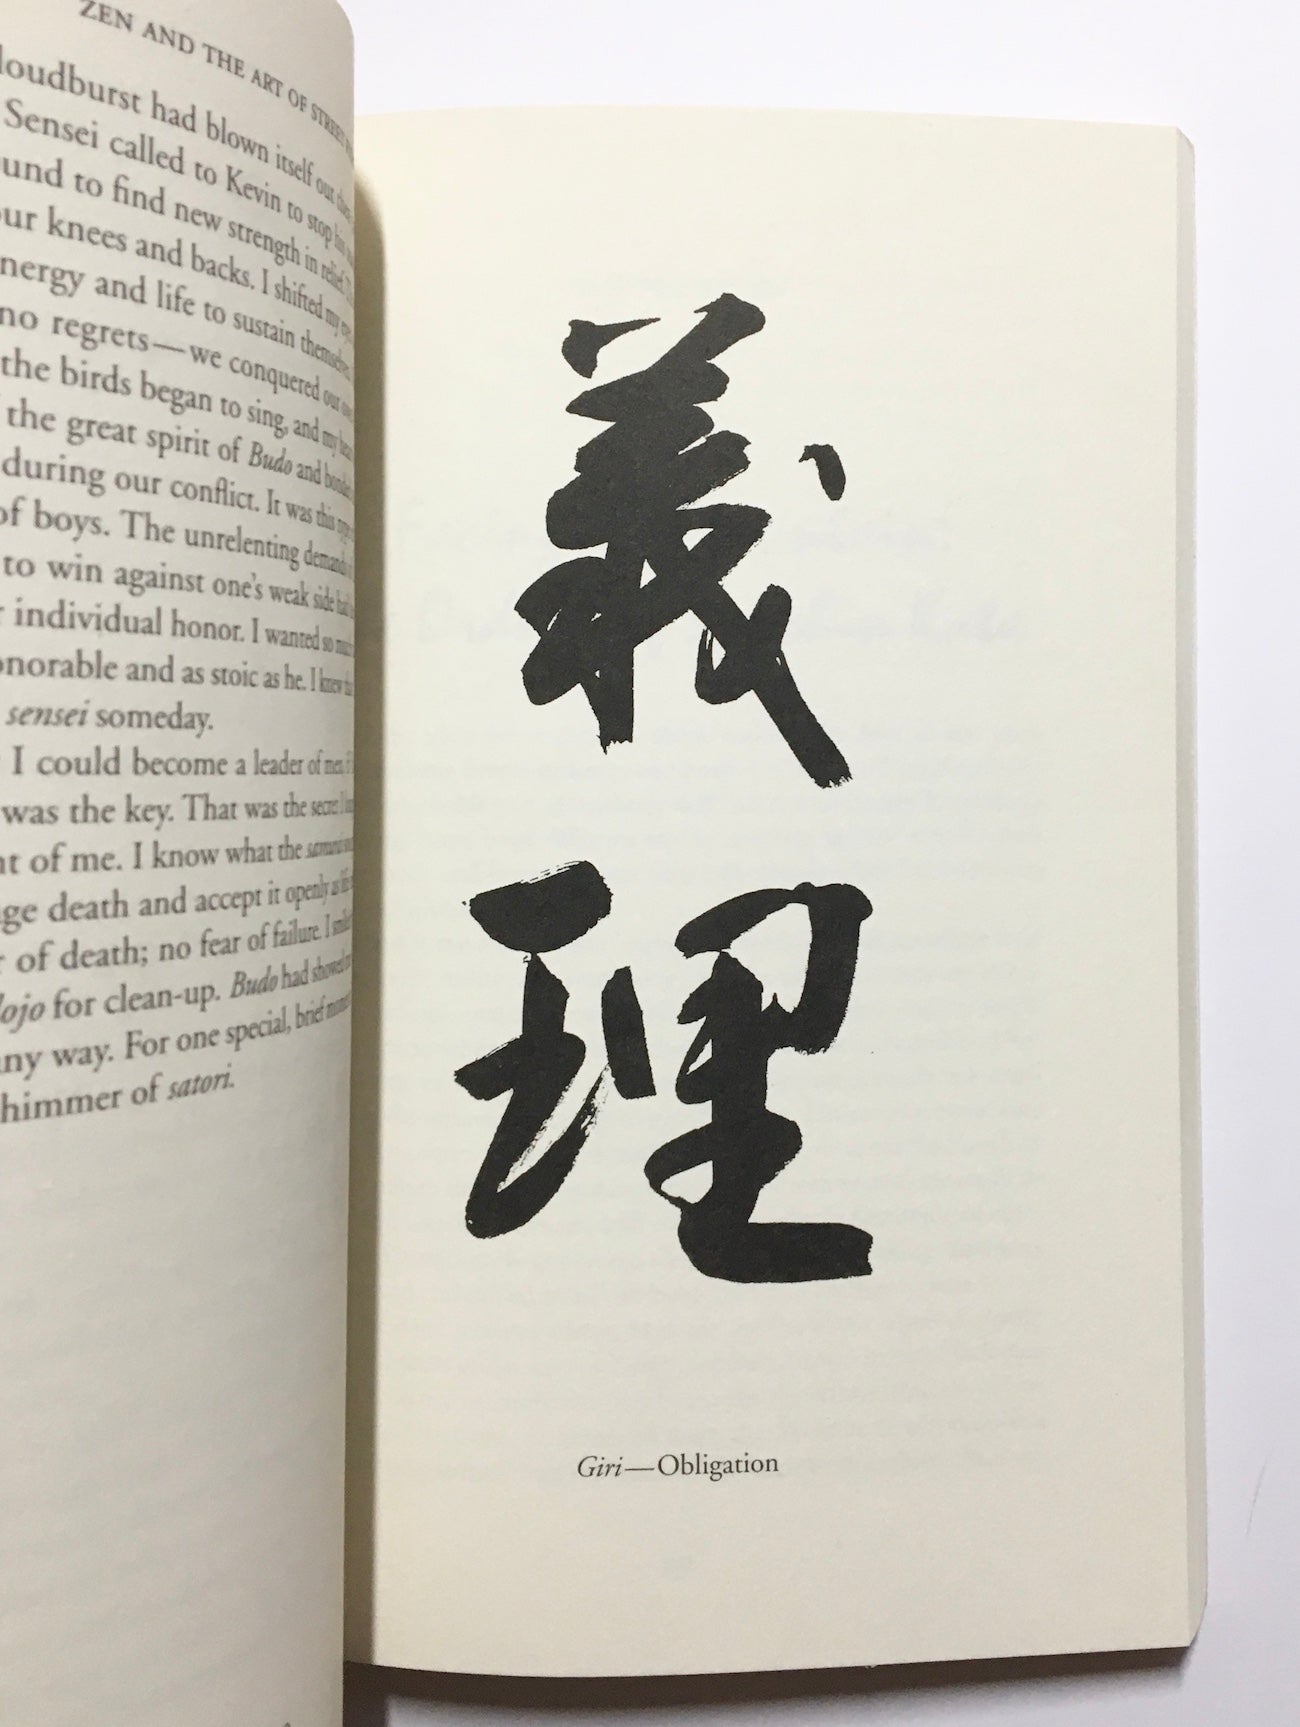 ZEN AND THE ART OF STREET
loudburst had blown itself out
Sensei called to Kevin to stop his
ound to find new strength in relief.
our knees and backs. I shifted my
nergy and life to sustain themselves.
no regrets—we conquered our
the birds began to sing, and my
the great spirit of Budo and
during our conflict. It was this
of boys. The unrelenting
to win against one's weak side had
individual honor. I wanted so
onorable and as stoic as he. I knew
sensei someday.
I could become a leader of men.
was the key. That was the secret
nt of me. I know what the samurai
ge death and accept it openly as
of death; no fear of failure. I
dojo for clean-up. Budo had showed
any way. For one special, brief
himmer of satori.
義
理
Giri—Obligation